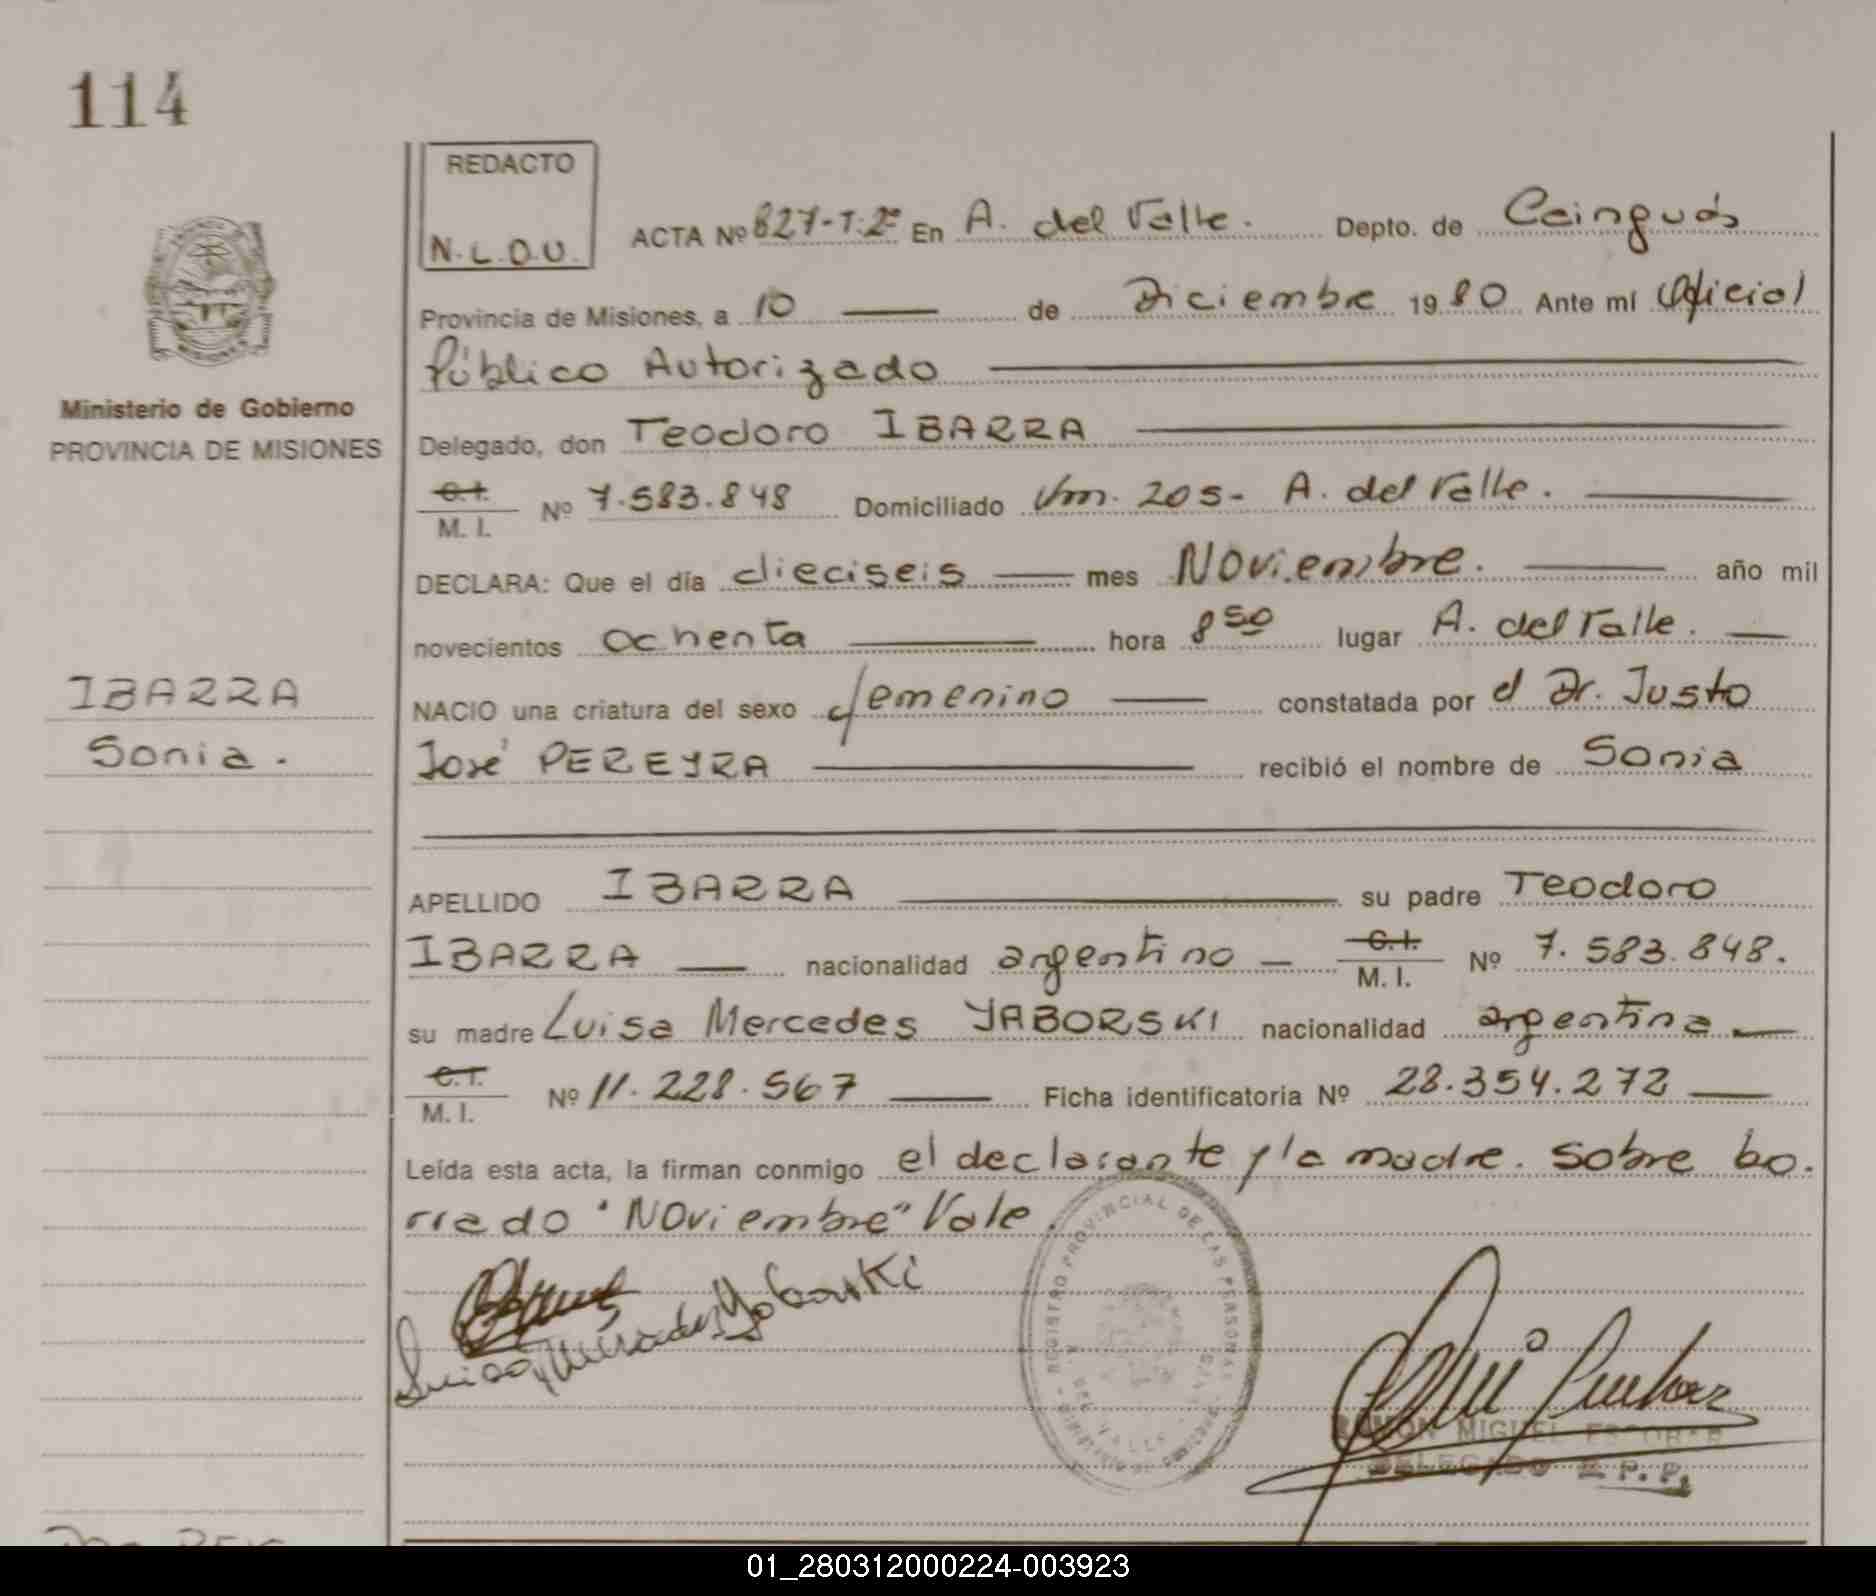 114
REDACTO
N.L.D.U.
ACTA Nº 827-T.2º En A. del Valle. Depto. de Cainguás
Provincia de Misiones, a 10 de Diciembre 1980 Ante mí Oficial
Público Autorizado
Ministerio de Gobierno
PROVINCIA DE MISIONES
Delegado, don Teodoro IBARRA
C.I.
M. I. Nº 7.583.848 Domiciliado Km. 205- A. del Valle.
DECLARA: Que el día dieciseis mes Noviembre. año mil
novecientos ochenta hora 8 50 lugar A. del Valle.
IBARRA
Sonia.
NACIO una criatura del sexo femenino constatada por el Dr. Justo
José PEREYRA recibió el nombre de Sonia
APELLIDO IBARRA su padre Teodoro
IBARRA nacionalidad argentino C.I. M. I. Nº 7.583.848.
su madre Luisa Mercedes YABORSKI nacionalidad argentina
C.I.
M. I. Nº 11.228.567 Ficha identificatoria Nº 28.354.272
Leída esta acta, la firman conmigo el declarante y la madre. Sobre bo.
rrado "Noviembre" Vale.
Luisa Mercedes Yaborski
REGISTRO PROVINCIAL DE LAS PERSONAS
RAMON MIGUEL ESCOBAR
DELEGADO R.P.P.
01_280312000224-003923